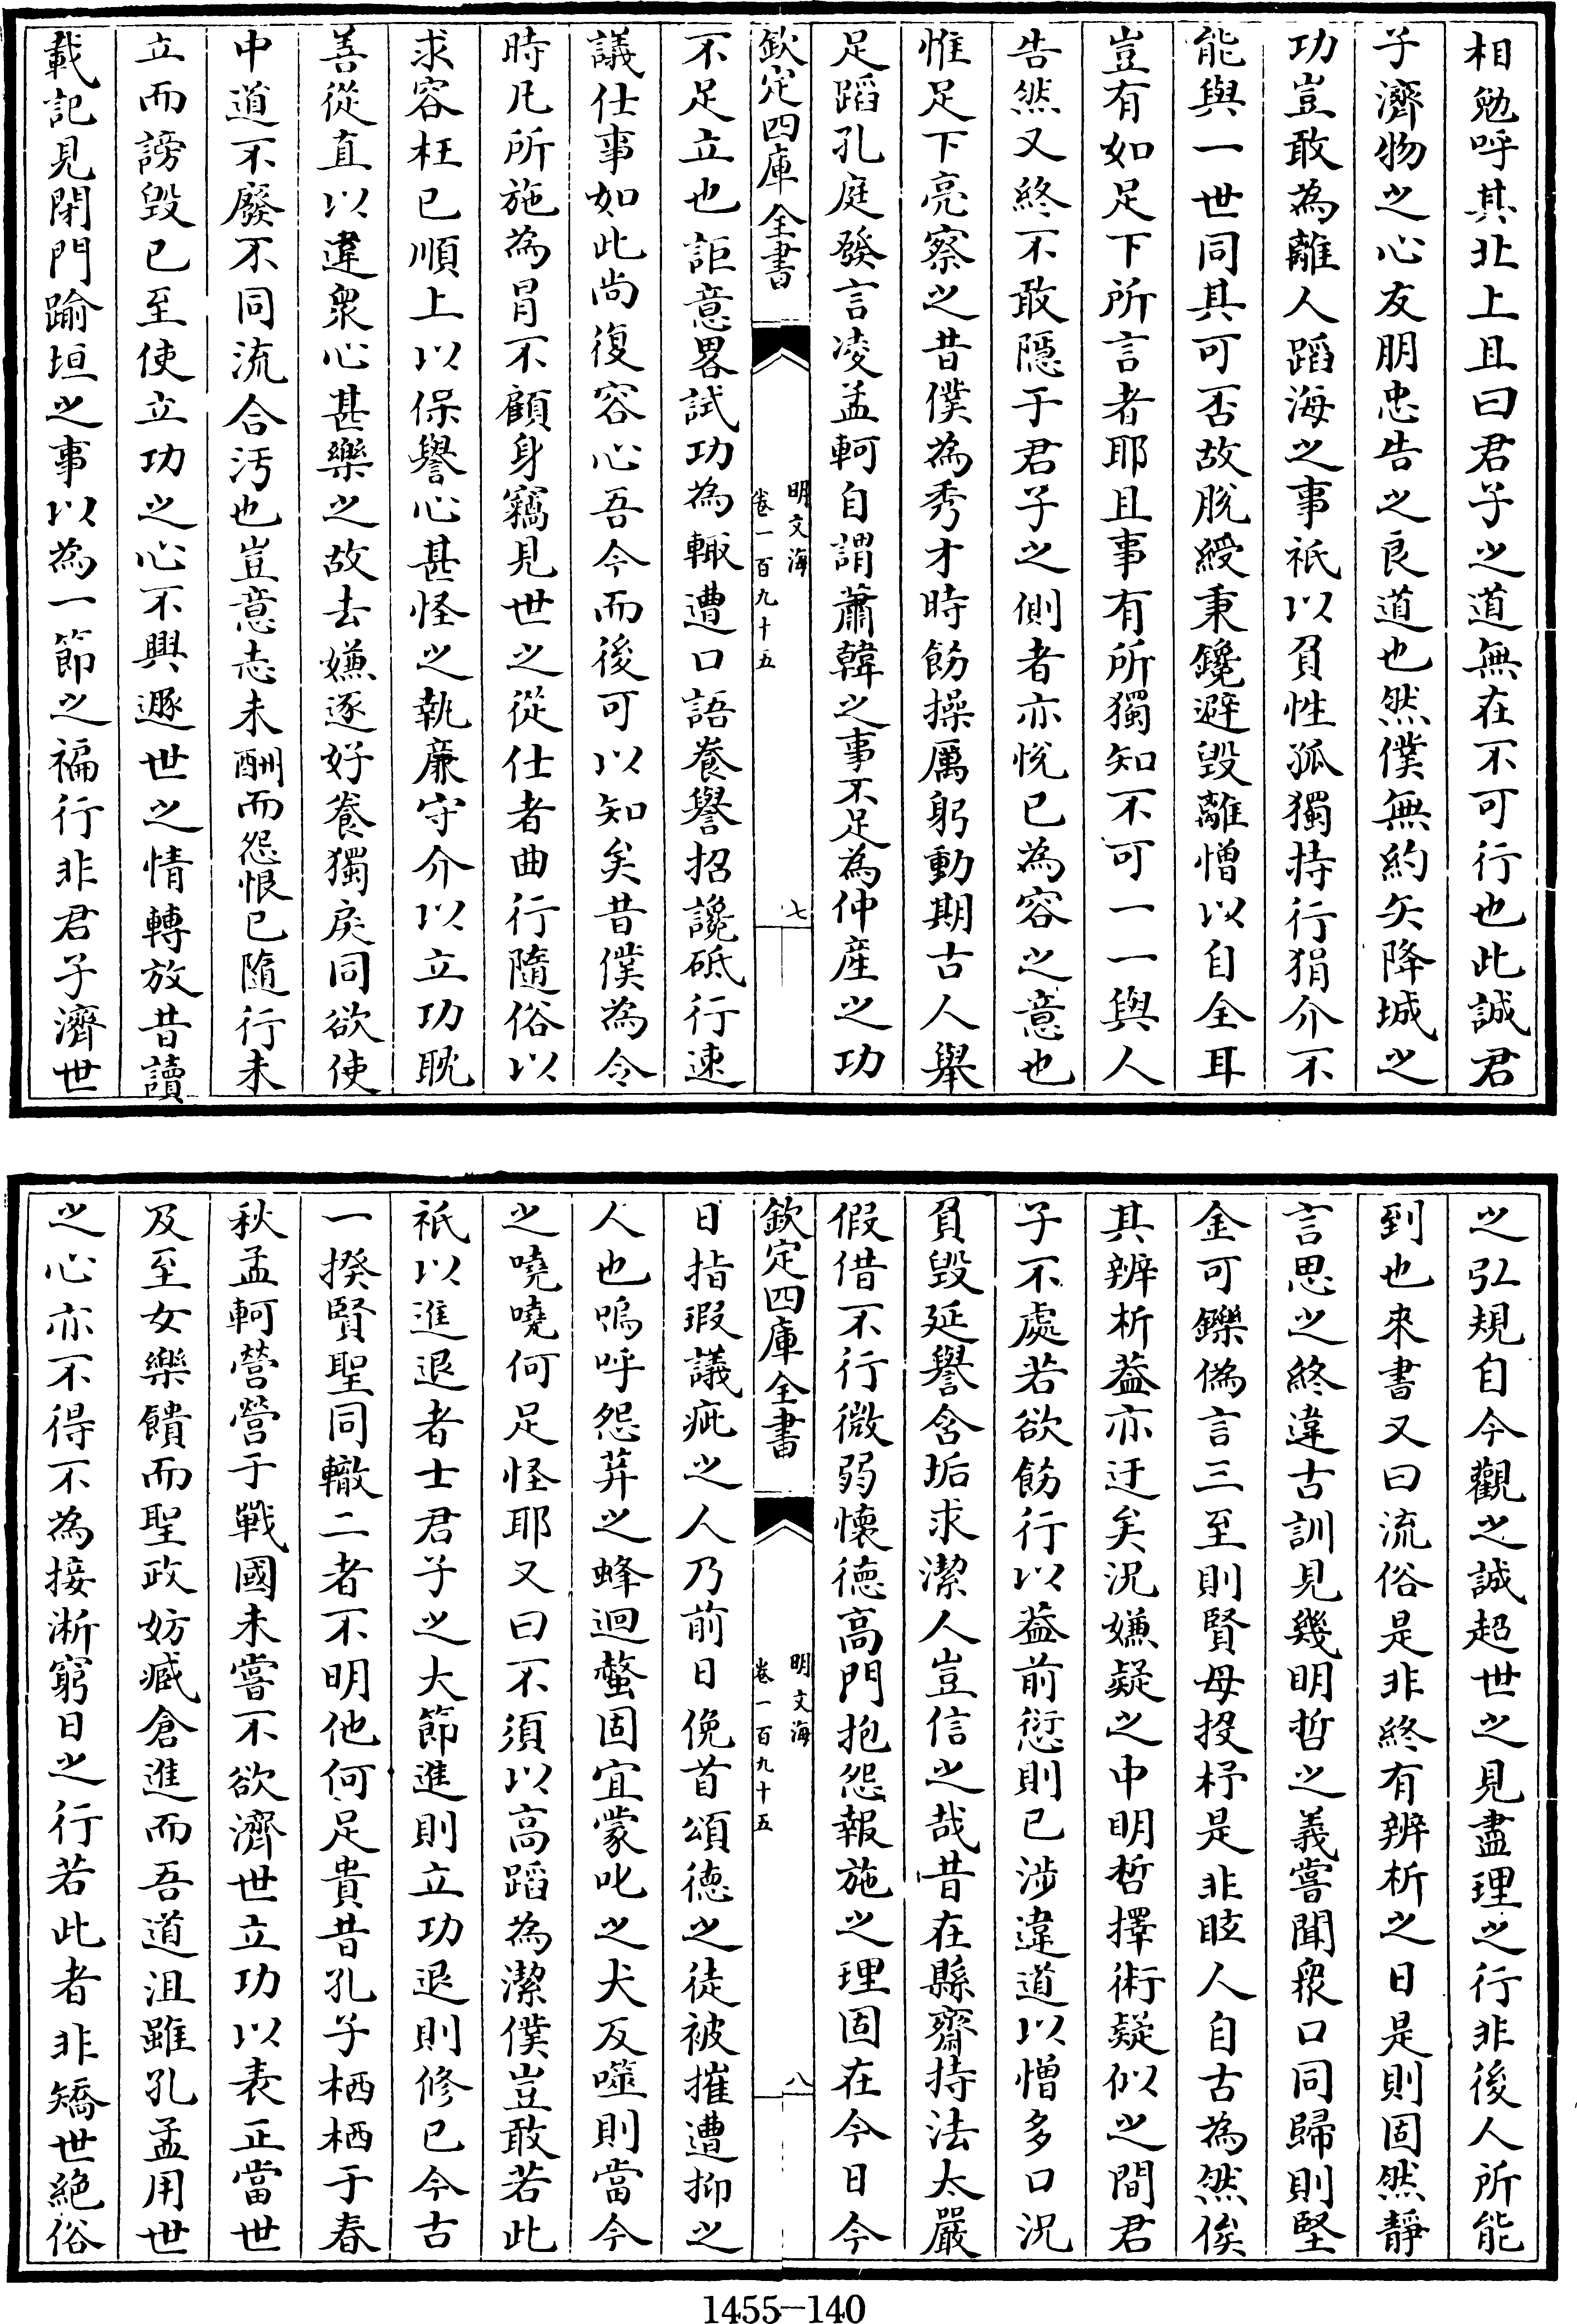 相勉呼其北上且曰君子之道無在不可行也此誠君
子濟物之心友朋忠告之良道也然僕無約矢降城之
功豈敢為離人蹈海之事祇以負性孤獨持行狷介不
能與一世同其可否故脫綬秉鑱避毀離憎以自全耳
豈有如足下所言者耶且事有所獨知不可一一與人
告然又終不敢隱于君子之側者亦恱已為容之意也
惟足下亮察之昔僕為秀才時飭操厲躬動期古人舉
足蹈孔庭發言凌孟軻自謂蕭韓之事不足為仲産之功
欽定四庫全書
明文海
卷一百九十五
七
不足立也詎意畧試功為輙遭口語養譽招讒砥行速
議仕事如此尚復容心吾今而後可以知矣昔僕為令
時凡所施為冒不顧身竊見世之從仕者曲行隨俗以
求容枉已順上以保譽心甚怪之執廉守介以立功耽
善從直以違衆心甚樂之故去嫌逐好養獨戾同欲使
中道不廢不同流合汚也豈意志未酬而怨恨已隨行未
立而謗毀已至使立功之心不興遯世之情轉放昔讀
載記見閉門踰垣之事以為一節之褊行非君子濟世
之弘規自今觀之誠超世之見盡理之行非後人所能
到也來書又曰流俗是非終有辨析之日是則固然靜
言思之終違古訓見幾明哲之義嘗聞衆口同歸則堅
金可鑠偽言三至則賢母投杼是非眩人自古為然俟
其辨析益亦迂矣況嫌疑之中明哲擇術疑似之間君
子不處若欲飭行以益前愆則已涉違道以憎多口況
負毀延譽含垢求潔人豈信之哉昔在縣齋持法太嚴
假借不行微弱懷徳高門抱怨報施之理固在今日今
欽定四庫全書
明文海
卷一百九十五
八
日指瑕議疵之人乃前日俛首頌徳之徒被摧遭抑之
人也嗚呼怨莽之蜂迴螫固宜蒙叱之犬反噬則當今
之嘵嘵何足怪耶又曰不須以高蹈為潔僕豈敢若此
祇以進退者士君子之大節進則立功退則修已今古
一揆賢聖同轍二者不明他何足貴昔孔子栖栖于春
秋孟軻營營于戰國未嘗不欲濟世立功以表正當世
及至女樂饋而聖政妨臧倉進而吾道沮雖孔孟用世
之心亦不得不為接淅窮日之行若此者非矯世絶俗
1455—140